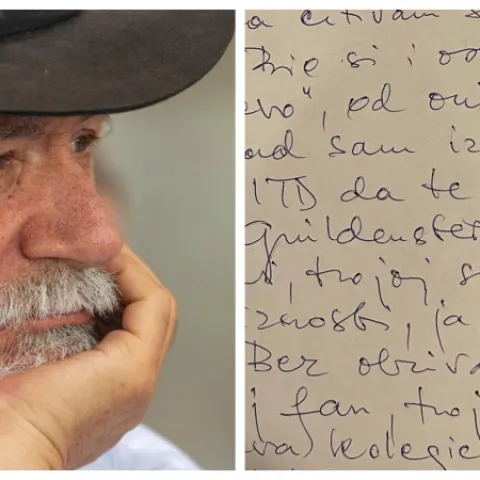 a čitvam s
si i oo
evo", od
ad sam iz
ITD da te
Guildenster
i, tvojoj s
iznosti, ja
Bez obzira
j fan, tvoj
va) kolegic